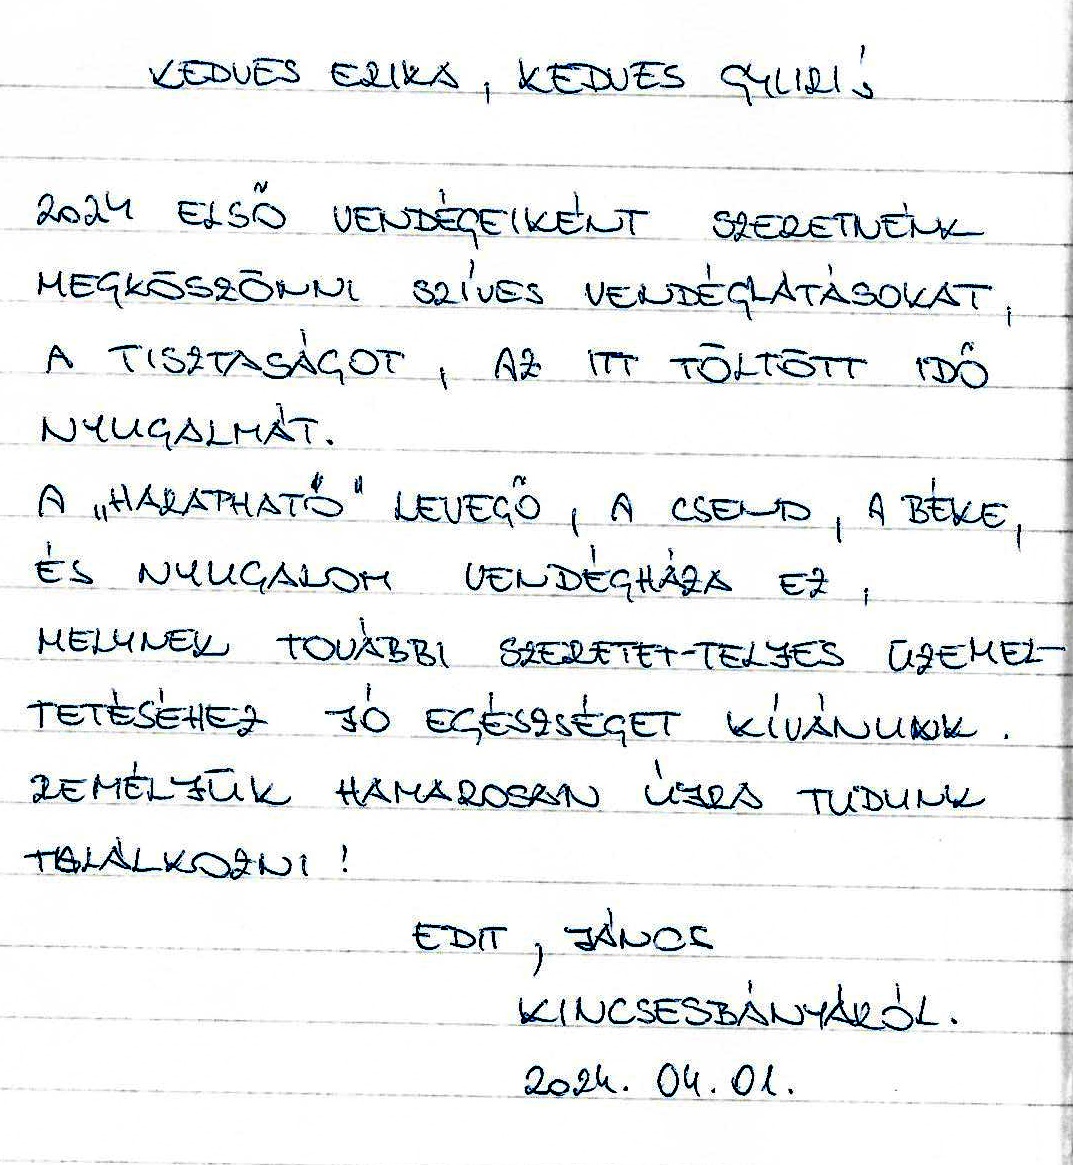 KEDVES ERIKA, KEDVES GYURI!
2024 ELSŐ VENDÉGEIKÉNT SZERETNÉNK
MEGKÖSZÖNNI SZÍVES VENDÉGLÁTÁSOKAT,
A TISZTASÁGOT, AZ ITT TÖLTÖTT IDŐ
NYUGALMÁT.
A „HARAPHATÓ" LEVEGŐ, A CSEND, A BÉKE,
ÉS NYUGALOM VENDÉGHÁZA EZ,
MELYNEK TOVÁBBI SZERETET-TELJES ÜZEMEL-
TETÉSÉHEZ JÓ EGÉSZSÉGET KÍVÁNUNK.
REMÉLJÜK HAMAROSAN ÚJRA TUDUNK
TALÁLKOZNI!
EDIT, JÁNOS
KINCSESBÁNYÁRÓL.
2024. 04. 01.